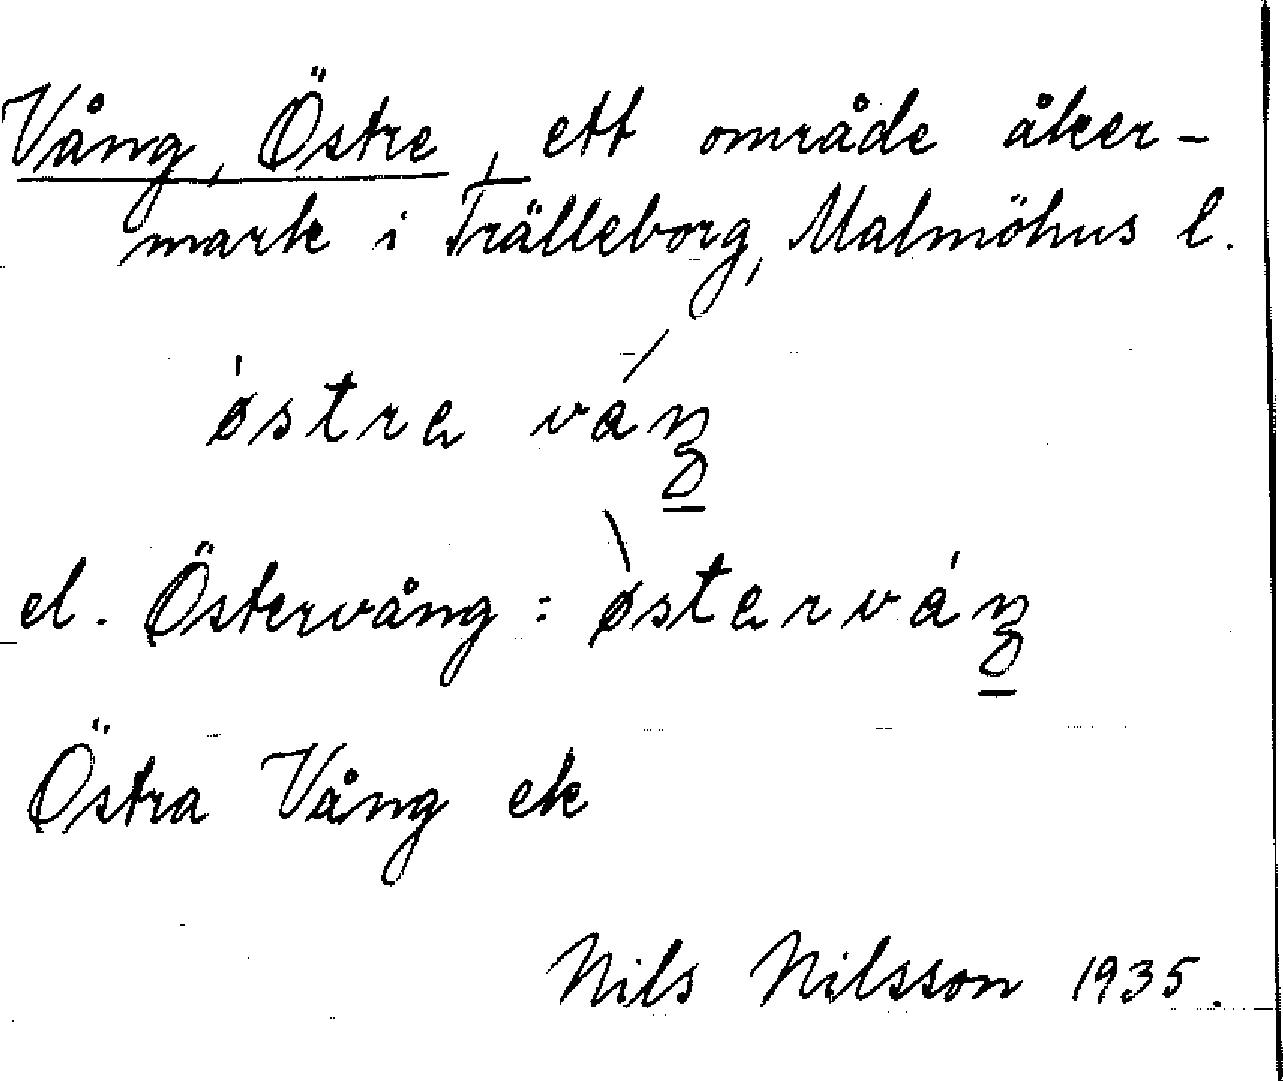 Vång, Östre, ett område åker-
mark i Trälleborg, Malmöhus l.
østra váŋ
el. Östervång: østarváŋ
Östra Vång ek
Nils Nilsson 1935.